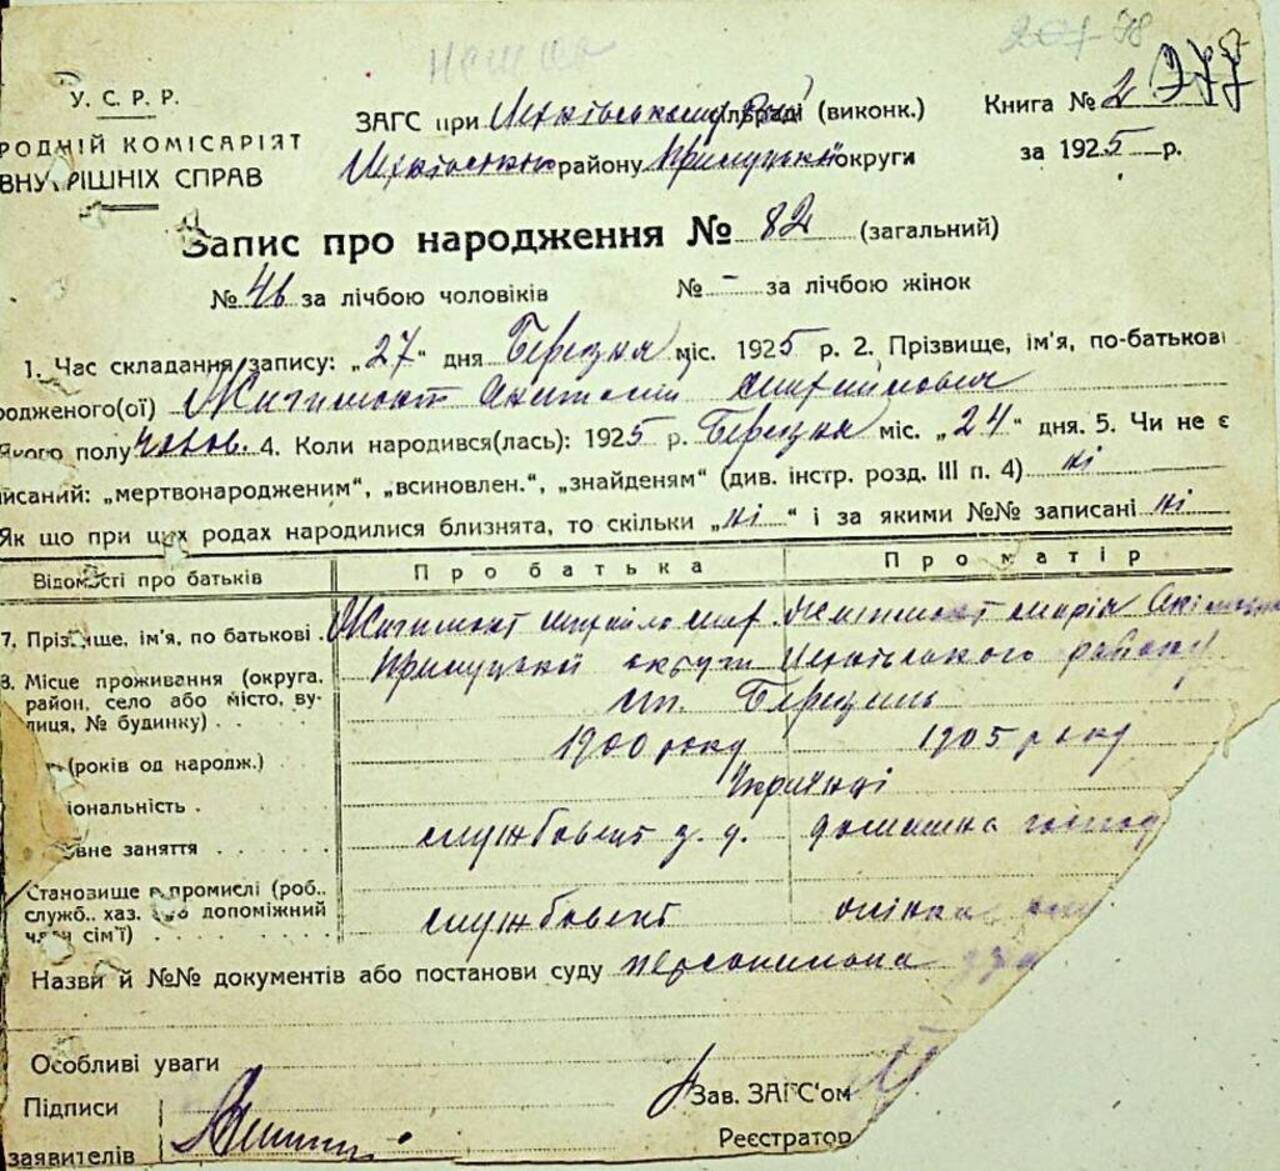 У. С. Р. Р.
РОДНІЙ КОМІСАРІЯТ
ВНУТРІШНІХ СПРАВ
ЗАГС при Ічнівському Рай сільраді (виконк.)
Книга № 2 277
Ічнянського району Прилуцької округи
за 1925 р.
Запис про народження № 82 (загальний)
№ 46 за лічбою чоловіків № - за лічбою жінок
1. Час складання запису: „27“ дня Березня міс. 1925 р. 2. Прізвище, ім'я, по-батькові
родженого(ої) Жигимонт Анатолій Михайлович
Якого полу чолов. 4. Коли народився(лась): 1925 р. Березня міс. „24“ дня. 5. Чи не є
писаний: „мертвонародженим“, „всиновлен.“, „знайденям“ (див. інстр. розд. III п. 4) ні
Як що при цих родах народилися близнята, то скільки „ні“ і за якими №№ записані ні
Відомості про батьків Про батька Про матір
7. Прізвище, ім'я, по батькові Жигимонт Михайло Мих. Жигимонт Марія
8. Місце проживання (округа, Прилуцької округи Ічнянського району
район, село або місто, ву- ст. Березень
лиця, № будинку)
(років од народж.) 1900 року 1905 року
іональність Українці
вне заняття службовець з. д. домашня господ
Становище в промислі (роб.,
служб., хаз. або допоміжний службовець
член сім'ї)
Назви й №№ документів або постанови суду
Особливі уваги
Підписи
заявителів
Зав. ЗАГС'ом
Реєстратор